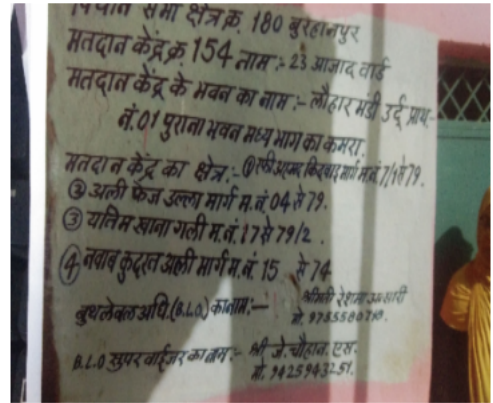 सभा क्षेत्र क्र. 180 बुरहानपुर
मतदान केंद्र क्र 154 नाम :- 23 आजाद वार्ड
मतदान केंद्र के भवन का नाम :- लौहार मंडी उर्दू प्राथ.-
नं.01 पुराना भवन मध्य भाग का कमरा
मतदान केंद्र का क्षेत्र :- ① मार्ग म.नं. 7/1 से 79.
② अली फैज उल्ला मार्ग म.नं. 04 से 79.
③ यतिम खाना गली म.नं. 17 से 79/2.
④ नवाब कुदरत अल्ली मार्ग म.नं. 15 से 74
बुथ लेवल अधि. (B.L.O.) का नाम :- श्रीमती रेशमा अंसारी
मो. 9755580798.
B.L.O सुपरवाईजर का नाम :- श्री जे. चौहान. एस.
मो. 9425943251.